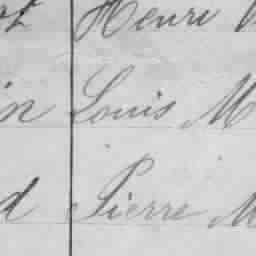 Henri
in Louis M
d Pierre M